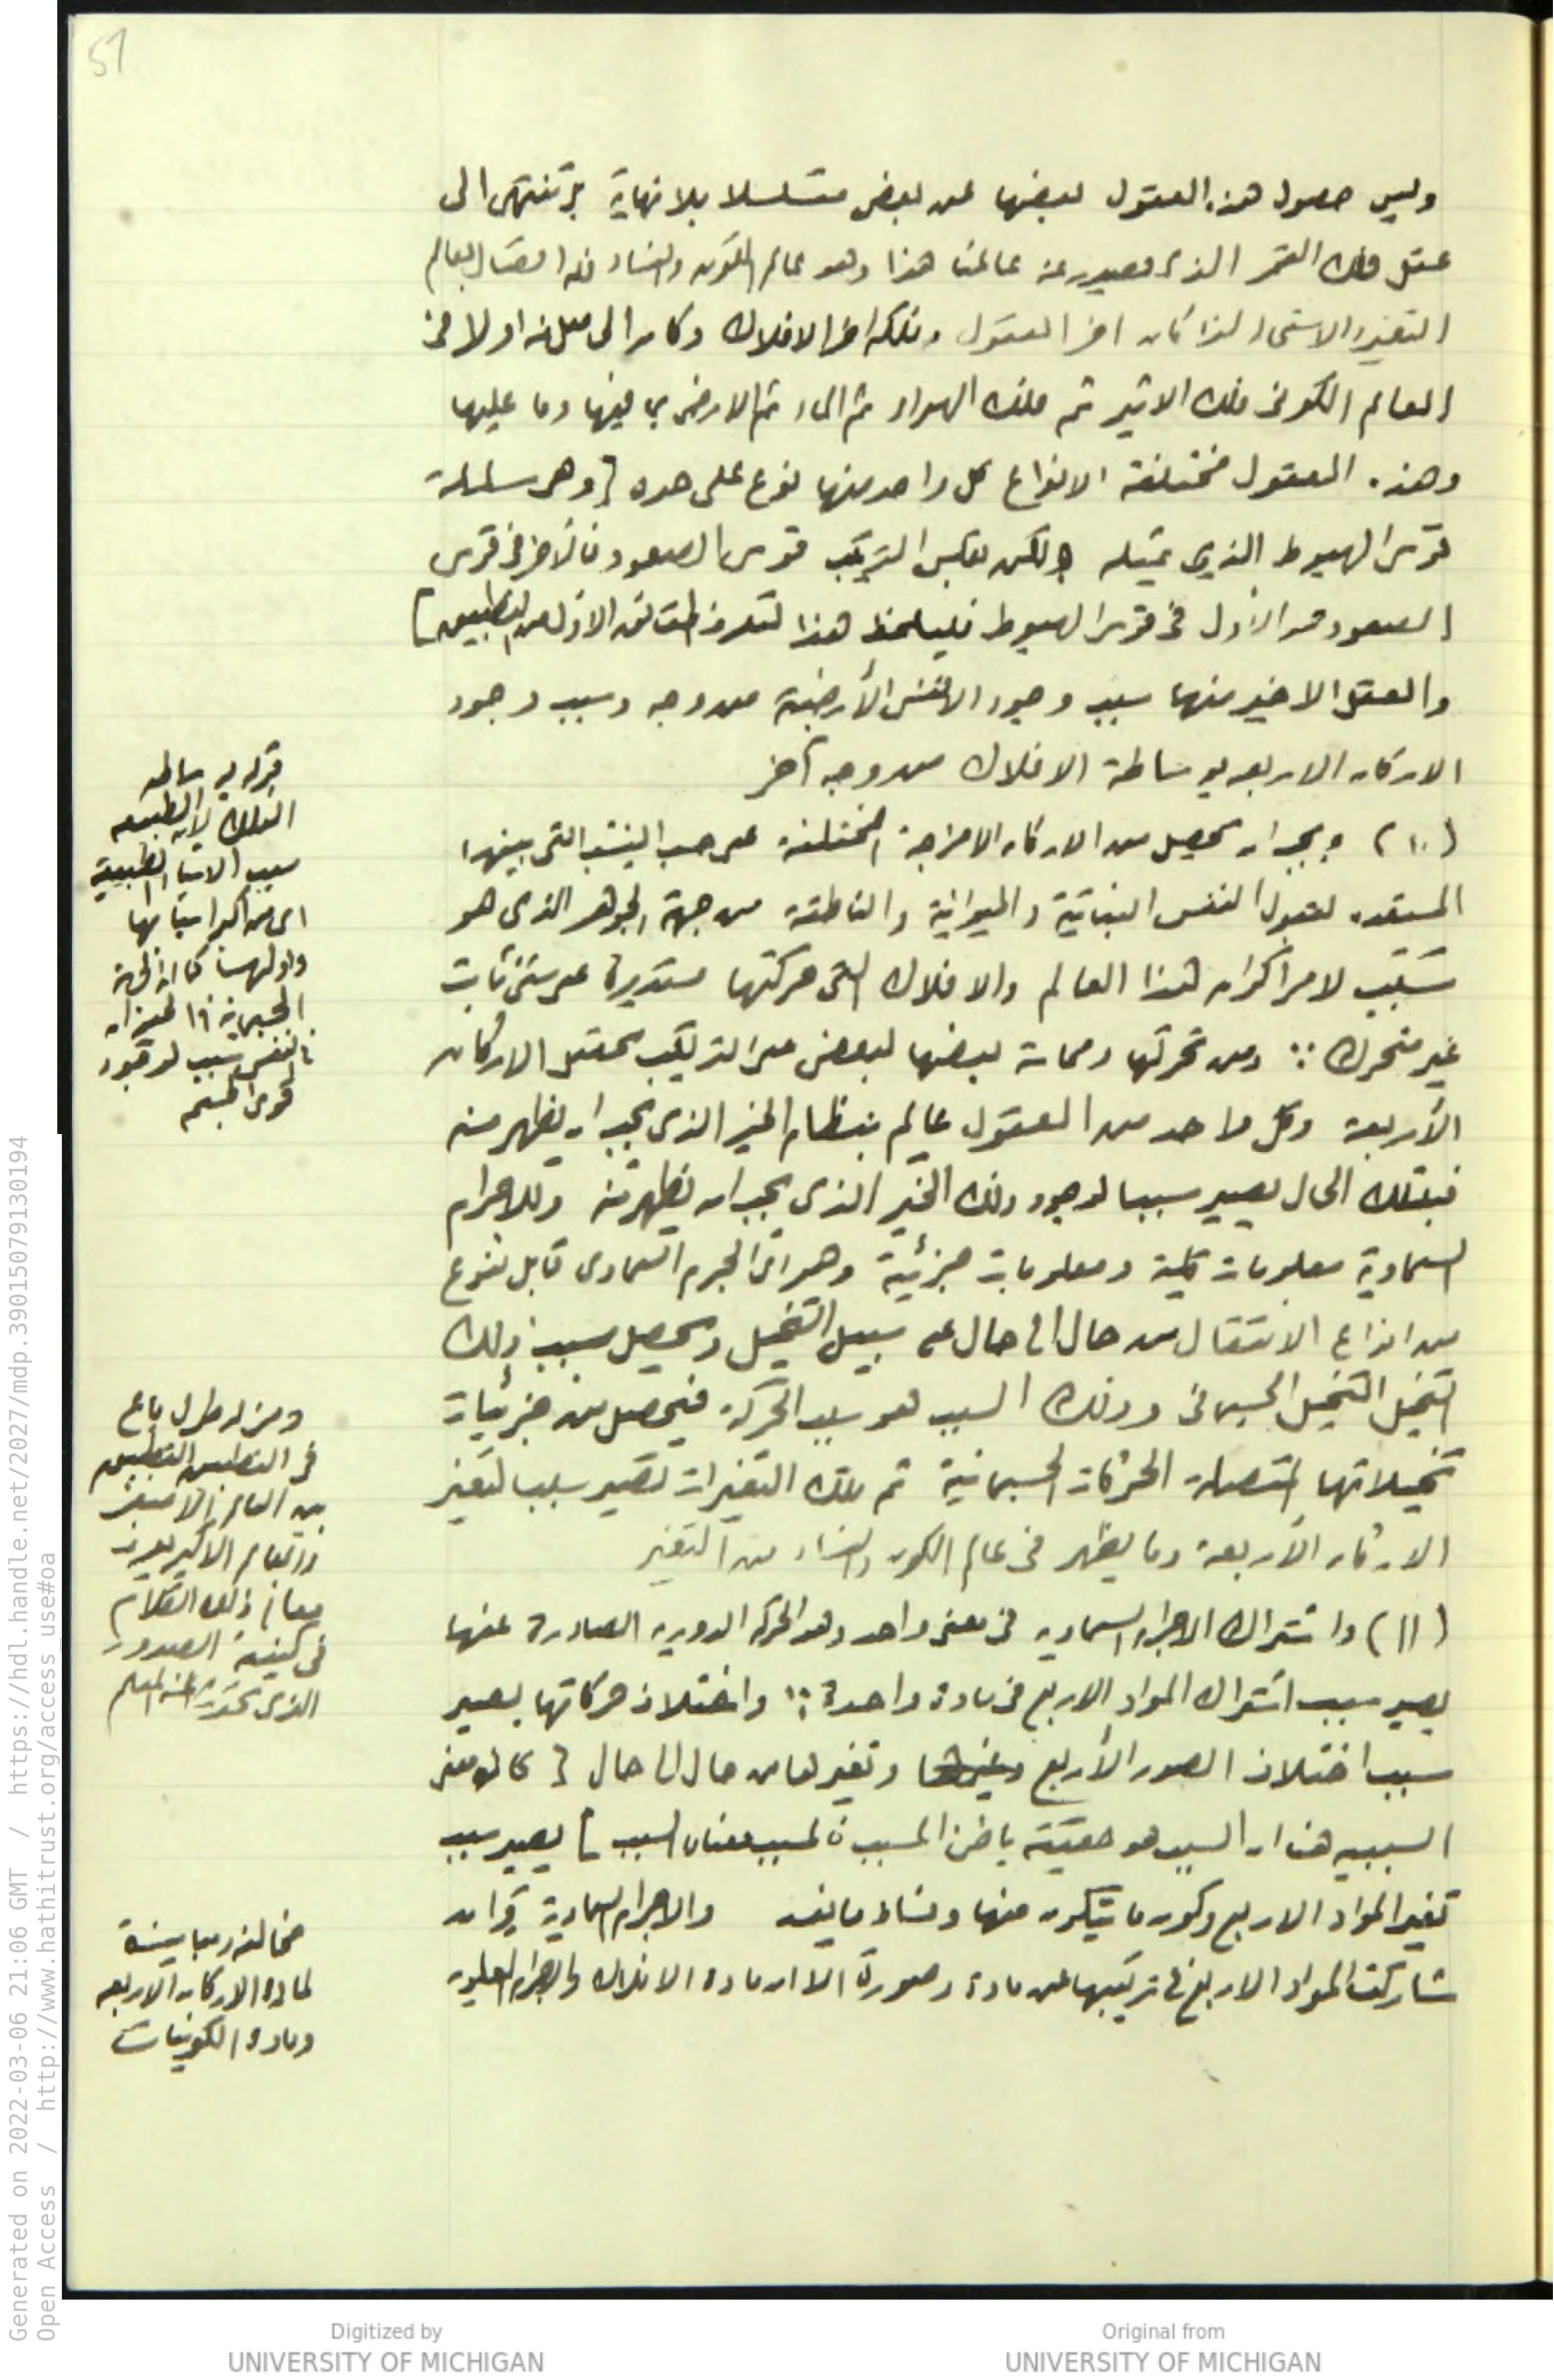 51
وليس حصول هذه العقول بعضها عن بعض متسلسلا بلا نهاية بل تنتهى الى
عقل فلك القمر الذى صدر عنه عالمنا هذا وهو عالم الكون والفساد
التغير والاستحالة لذا كان اخر العقول وفلكه اخر الافلاك وكان
العالم الكونى فلك الاثير ثم فلك الهواء ثم الماء ثم الارض بما فيها وما عليها
وهذه العقول مختلفة الانواع كل واحد منها نوع على حده [ وهى سلسلة
قوس الهبوط الذى تمثله ولكن بعكس الترتيب قوس الصعود فالآخر فى قوس
الصعود هو الأول فى قوس الهبوط فليلحظ هذا
والعقل الاخير منها سبب وجود الانفس الأرضية من وجه وسبب وجود
الاركان الاربعه بوساطة الافلاك من وجه آخر
(١٠) ويجب ان يحصل من الاركان الامزجة المختلفة على حسب النسب التى بينها
المستعده لقبول النفس النباتية والحيوانية والناطقة من جهة الجوهر الذى هو
سبب لامر اكوان هذا العالم والافلاك التى حركتها مستديرة على شئ ثابت
غير متحرك ∵ ومن تحركها ومماسة بعضها لبعض على الترتيب تحصل الاركان
الأربعة وكل واحد من العقول عالم بنظام الخير الذى يجب ان يظهر منه
فبتلك الحال يصير سببا لوجود ذلك الخير الذى يجب ان يظهر منه وللاجرام
السماوية معلومات كلية ومعلومات جزئية وهو اى الجرم السماوى قابل لنوع
من انواع الانتقال من حال الى حال على سبيل التخيل ويحصل بسبب ذلك
التخيل التخيل الجسمانى وذلك السبب هو سبب الحركة فيحصل من جزئيات
تخيلاتها المتصلة الحركات الجسمانية ثم تلك التغيرات تصير سببا لتغير
الاركان الأربعة وما يظهر فى عالم الكون والفساد من التغير
(١١) واشتراك الاجرام السماويه فى معنى واحد وهو الحركة الدوريه الصادرة عنها
يصير سبب اشتراك المواد الاربع فى مادة واحدة ∵ واختلاف حركاتها يصير
سبب اختلاف الصور الأربع وتغيرها من حال الى حال [ كان معنى
السببيه هنا ان السبب هو حقيقة باطن المسبب فالمسبب معناه السبب ] يصير سبب
تغير المواد الاربع وكون ما يتكون منها وفساد ما يفسد والاجرام السماوية وان
شاركت المواد الاربع فى تركيبها عن مادة وصورة الا ان مادة الافلاك والاجرام العلويه
قوله بوساطه
الافلاك لان الطبيعه
سبب الاشيا الطبيعية
اى من اكبر اسبابها
واولها كما ان
الجسمانية
فالنفس سبب لوجود
قوى الجسم
ومن له طول باع
فى التطبيق
بين العالم الاصغر
والعالم الاكبر يعرف
معانى ذلك الكلام
فى كيفية الصدور
الذى تحدث عنه المعلم
مخالفه ومباينة
لمادة الاركان الاربعه
وماده الكونيات
Generated on 2022-03-06 21:06 GMT / https://hdl.handle.net/2027/mdp.39015079130194
Open Access / http://www.hathitrust.org/access_use#oa
Digitized by
UNIVERSITY OF MICHIGAN
Original from
UNIVERSITY OF MICHIGAN